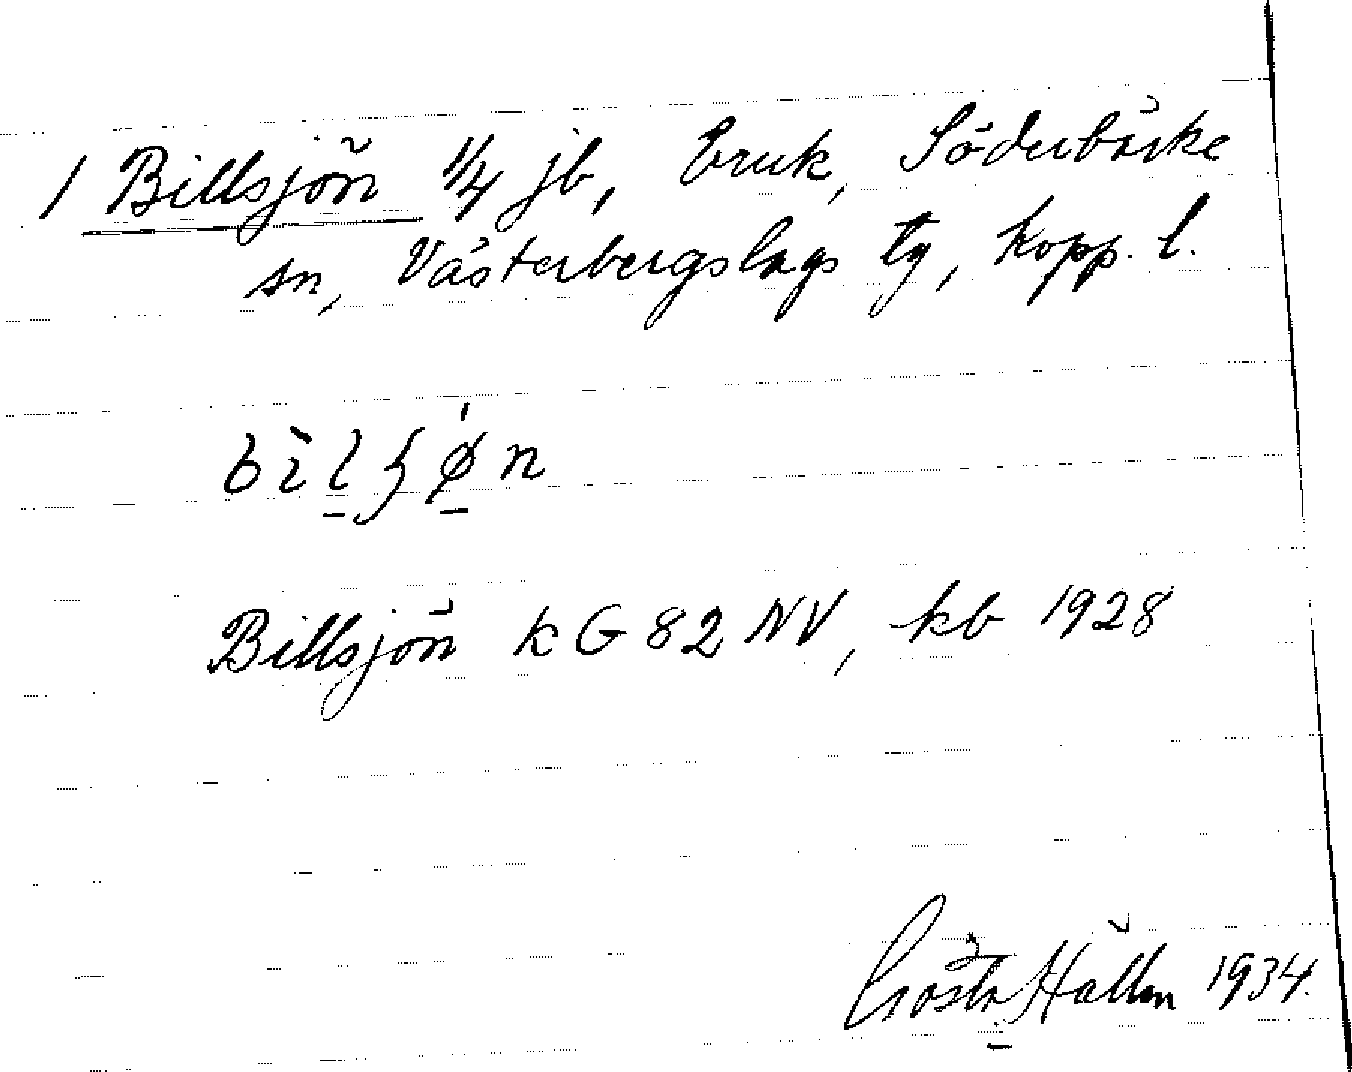 1 Billsjön 1/4 jb, bruk, Söderbärke
sn, Västerbergslags tg, Kopp. l.
Billsjön kG82NV, kb 1928
Gösta Hallm 1934.